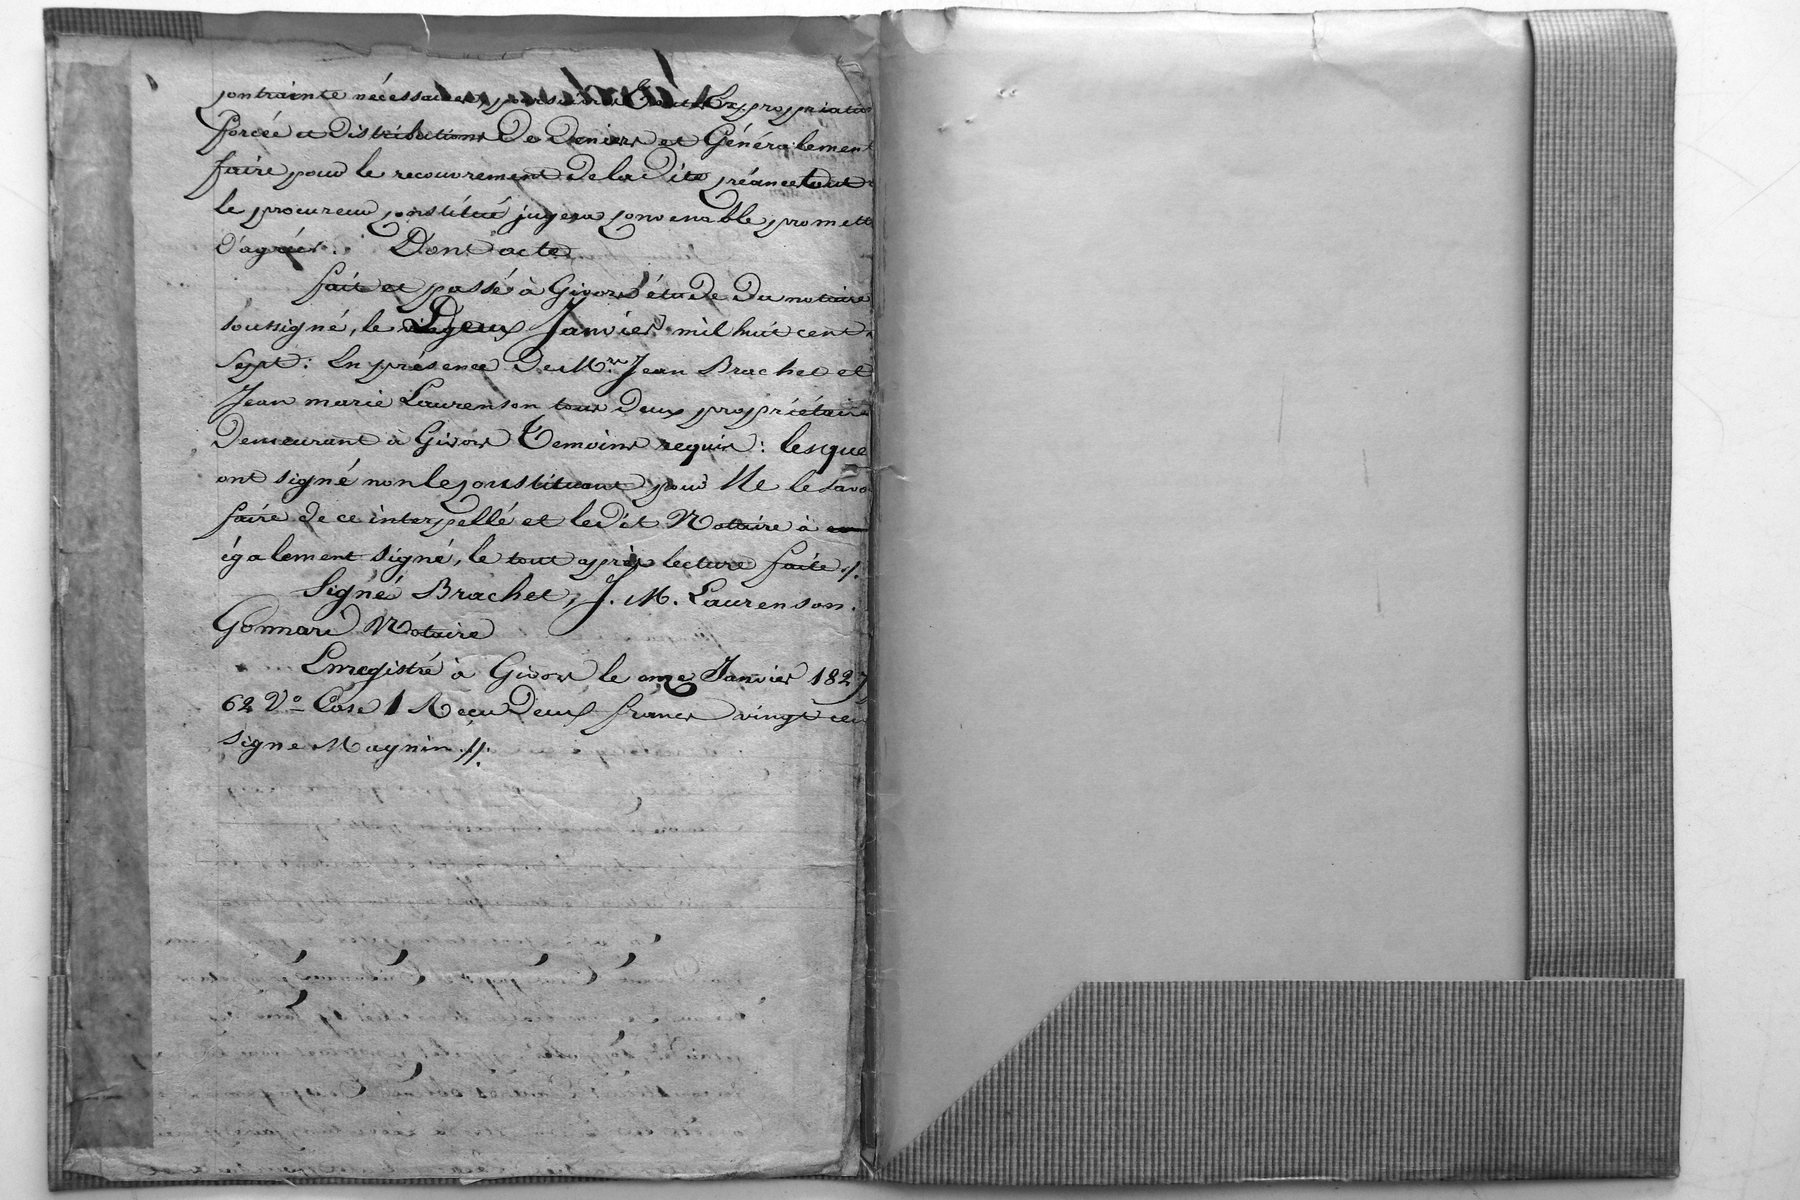 contrainte nécessaires, poursuivre toute Expropriation
forcée et distributions De Deniers et Généralement
faire pour le recouvrement de la Dite créance tout c
le procureur constitué jugera convenable, promett
d'agréer. Dont acte
fait et passé à Givors étude Du notaire
soussigné, le Deux Janvier mil huit cent v
Sept: En présence De Mrs. Jean Brachet et
Jean marie Laurenson tous Deux propriétaires
Demeurant à Givors Témoins requis: lesque
ont signé non le constituant pour Ne le savo
faire de ce interpellé et ledit Notaire à
également signé, le tout après lecture faite ./.
Signé Brachet, J. M. Laurenson.
Gonnard Notaire
Enregistré à Givors le onze Janvier 1827
62 Vo Case 1 Reçu Deux francs vingt cen
signé Magnin .//.